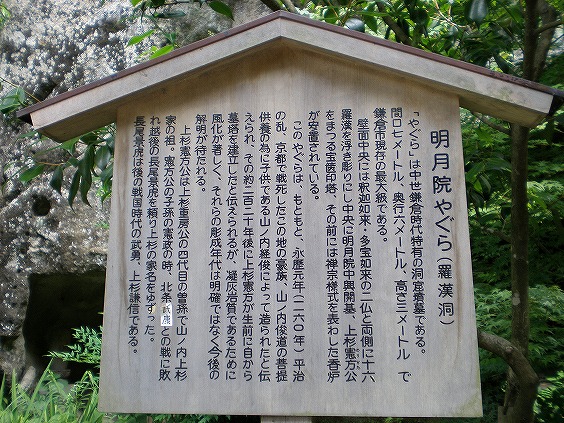 明月院やぐら（羅漢洞）
「やぐら」は中世鎌倉時代特有の洞窟墳墓である。
間口七メートル、奥行六メートル、高さ三メートル で
鎌倉市現存の最大級である。
壁面中央には釈迦如来・多宝如来の二仏と両側に十六
羅漢を浮き彫りにし中央に明月院中興開基、上杉憲方公
をまつる宝医印塔、その前には禅宗様式を表わした香炉
が安置されている。
このやぐらは、もともと、永歴元年（一一六〇年）平治
の乱、京都で戦死したこの地の豪族、山ノ内俊道の菩提
供養の為に子供である山ノ内経俊によって造られたと伝
えられ、その約二百二十年後に上杉憲方が生前に自から
墓塔を建立したと伝えられるが、凝灰岩質であるために
風化が著しく、それらの彫成年代は明確ではなく今後の
解明が待たれる。
上杉憲方公は上杉重房公の四代目の曽孫で山ノ内上杉
家の祖・憲方公の子孫の憲政の時、北条氏康との戦に敗
れ越後の長尾景虎を頼り上杉の家名をゆずった。
長尾景虎は後の戦国時代の武勇、上杉謙信である。